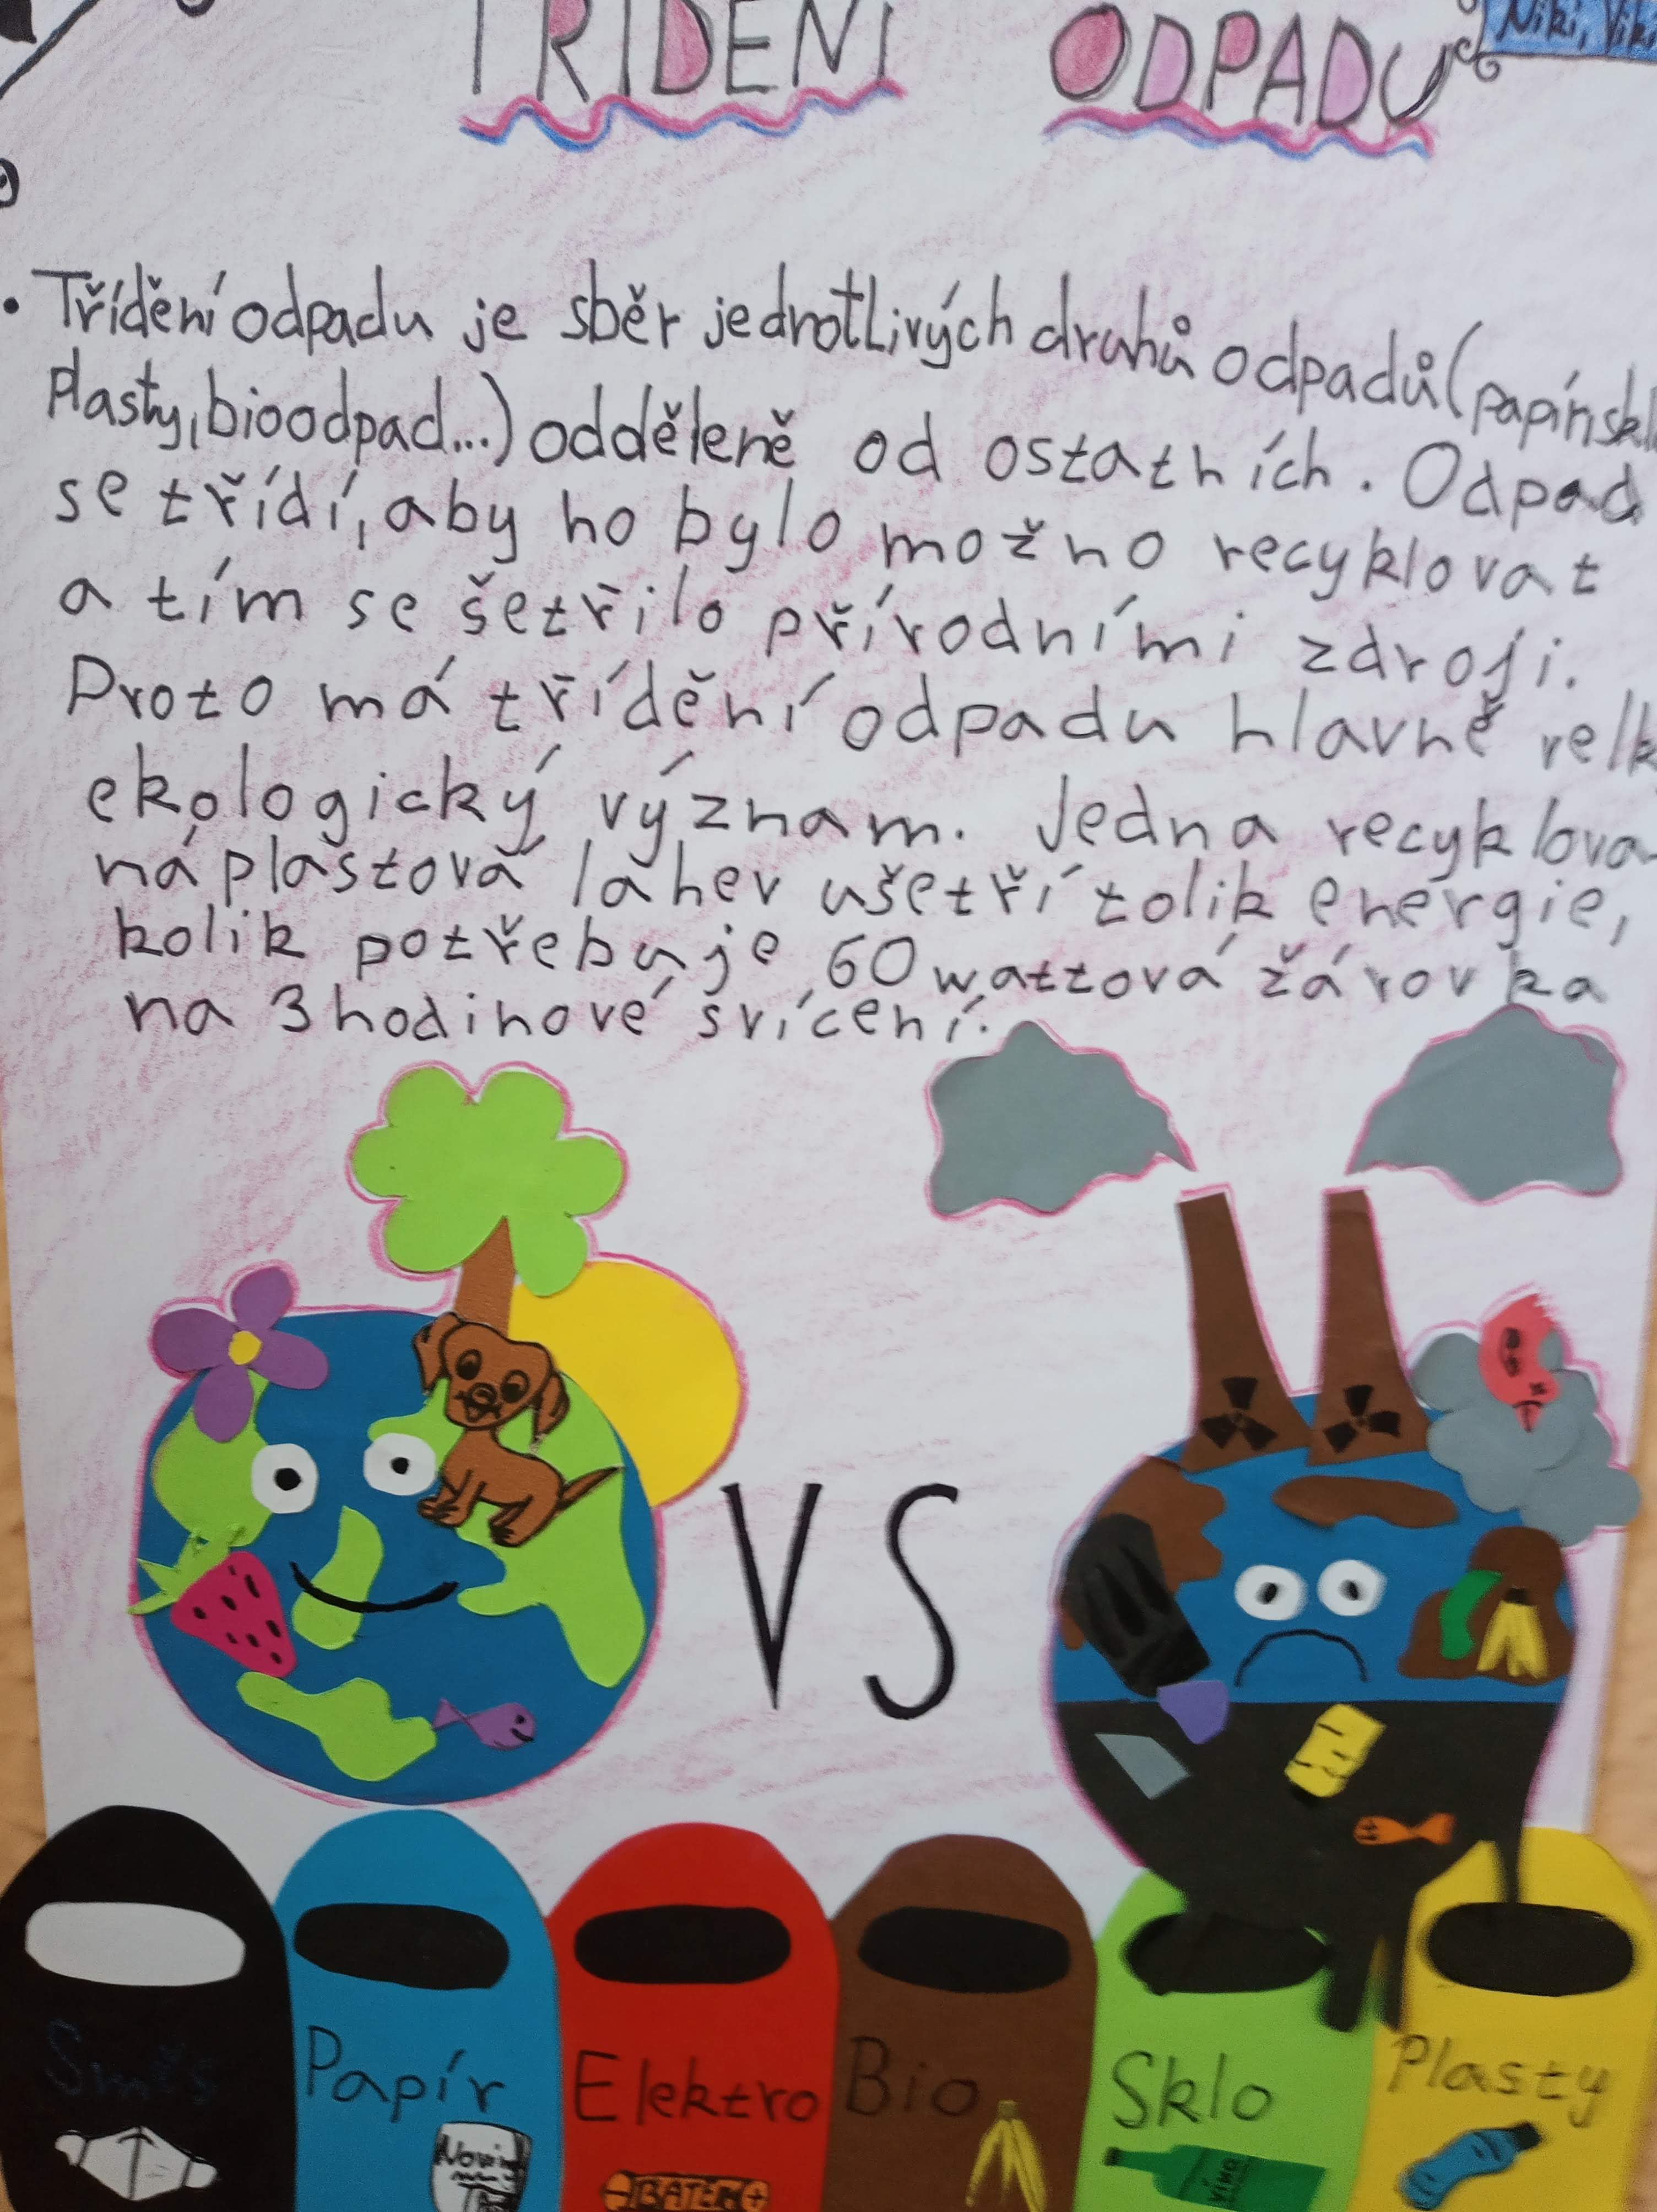 TŘÍDĚNÍ ODPADU
Niki, Viki
• Třídění odpadu je sběr jednotlivých druhů odpadů (papír, skl
plasty, bioodpad...) odděleně od ostatních. Odpad
se třídí, aby ho bylo možno recyklovat
a tím se šetřilo přírodními zdroji.
Proto má třídění odpadu hlavně velk
ekologický význam. Jedna recyklova-
ná plastová lahev ušetří tolik energie,
kolik potřebuje 60 wattová žárovka
na 3 hodinové svícení.
VS
Směs
Papír
Elektro
Bio
Sklo
Plasty
BATERI
VÍNO